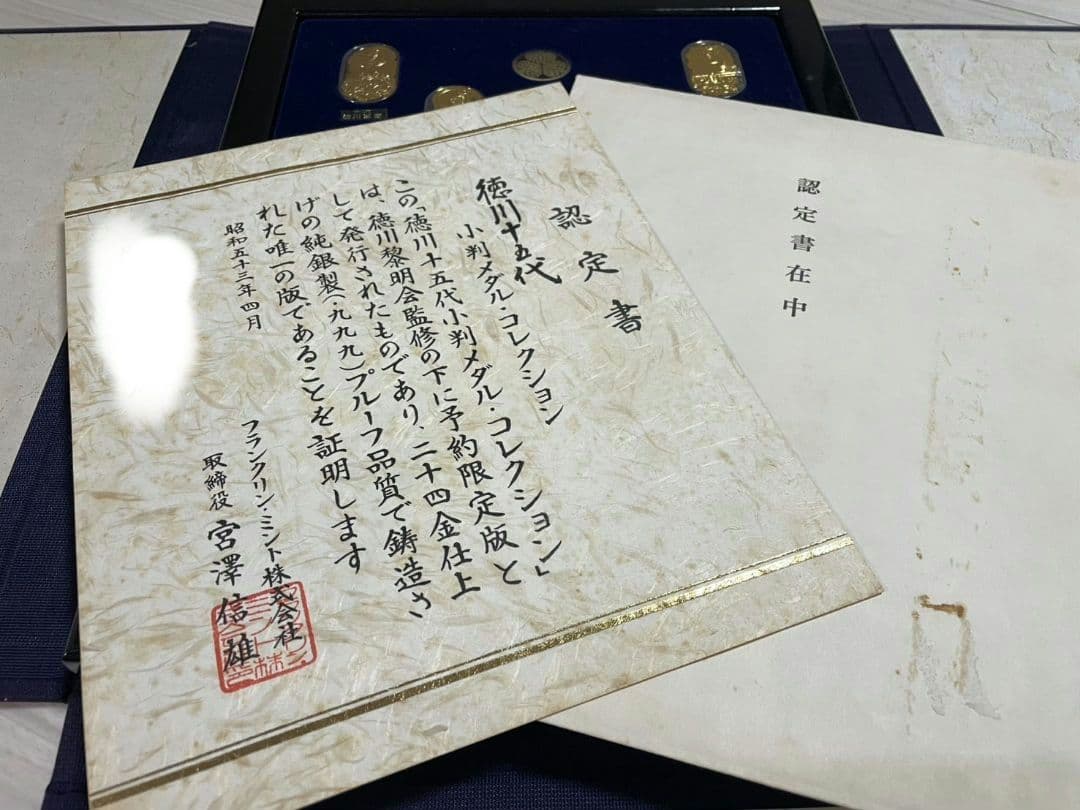 認定書
徳川十五代
小判メダル・コレクション
この「徳川十五代小判メダル・コレクション」
は、徳川黎明会監修の下に予約限定版と
して発行されたものであり、二十四金仕上
げの純銀製(・九九九)プルーフ品質で鋳造さ
れた唯一の版であることを証明します
昭和五十三年四月
フランクリン・ミント株式会社
取締役 宮澤信雄
認定書在中